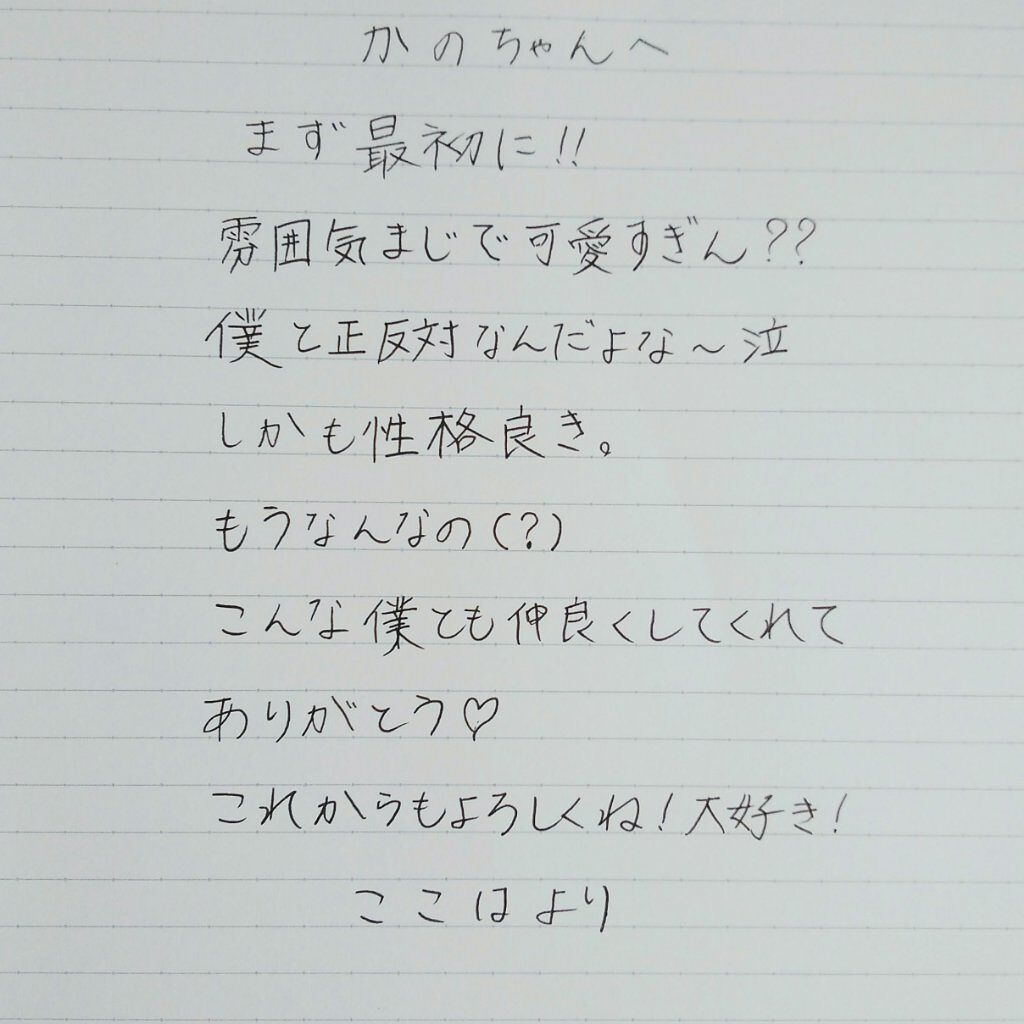 かのちゃんへ
まず最初に!!
雰囲気まじで可愛すぎん??
僕と正反対なんだよな～泣
しかも性格良き。
もうなんなの(?)
こんな僕とも仲良くしてくれて
ありがとう♡
これからもよろしくね!大好き!
ここはより